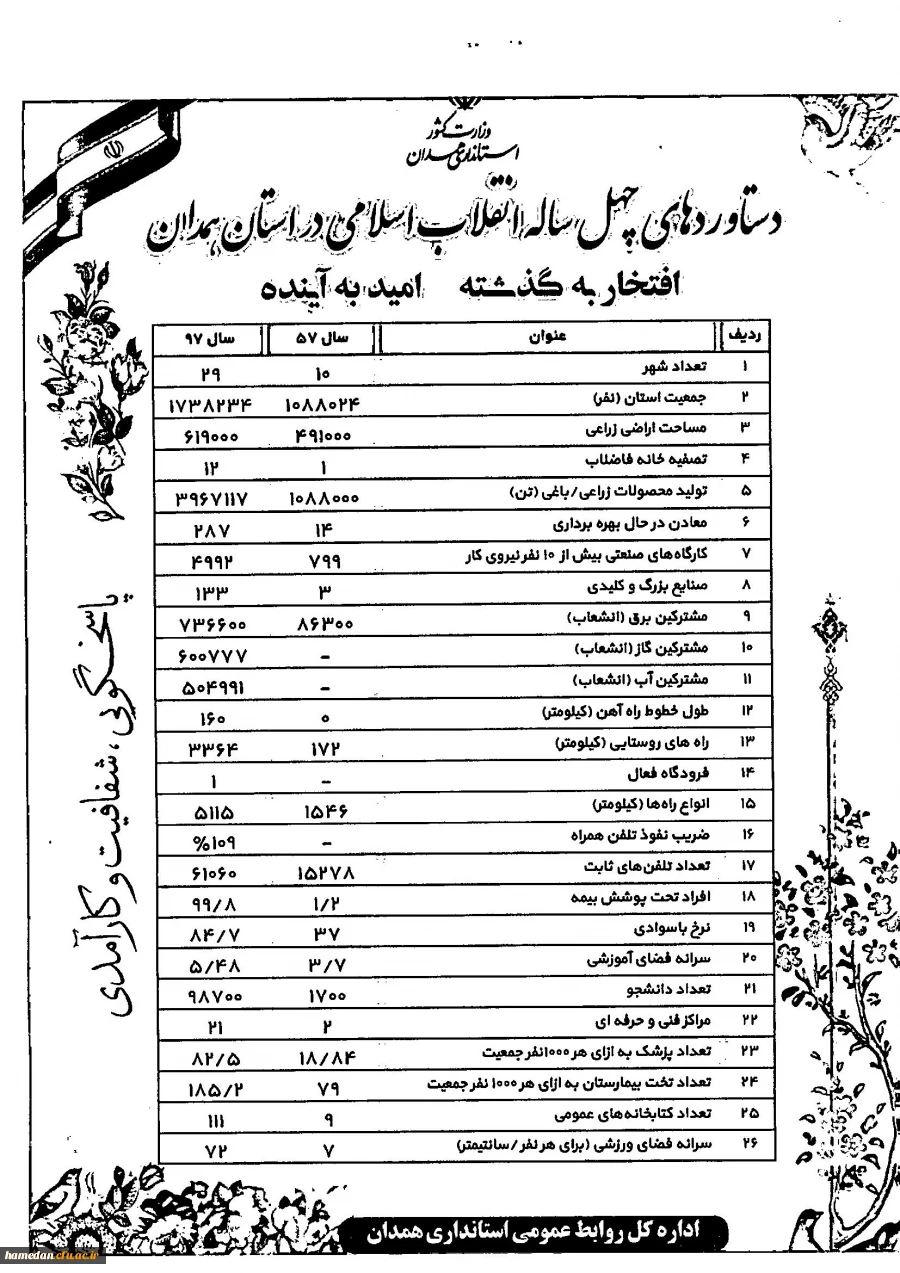 وزارت کشور
استانداری همدان
دستاوردهای چهل ساله انقلاب اسلامی در استان همدان
افتخار به گذشته امید به آینده
ردیف عنوان سال ۵۷ سال ۹۷
۱ تعداد شهر ۱۰ ۲۹
۲ جمعیت استان (نفر) ۱۰۸۸۰۲۴ ۱۷۳۸۲۳۴
۳ مساحت اراضی زراعی ۴۹۱۰۰۰ ۶۱۹۰۰۰
۴ تصفیه خانه فاضلاب ۱ ۱۲
۵ تولید محصولات زراعی/باغی (تن) ۱۰۸۸۰۰۰ ۳۹۶۷۱۱۷
۶ معادن در حال بهره برداری ۱۴ ۲۸۷
۷ کارگاه‌های صنعتی بیش از ۱۰ نفر نیروی کار ۷۹۹ ۴۹۹۲
۸ صنایع بزرگ و کلیدی ۳ ۱۳۳
۹ مشترکین برق (انشعاب) ۸۶۳۰۰ ۷۳۶۶۰۰
۱۰ مشترکین گاز (انشعاب) - ۶۰۰۷۷۷
۱۱ مشترکین آب (انشعاب) - ۵۰۴۹۹۱
۱۲ طول خطوط راه آهن (کیلومتر) ۰ ۱۶۰
۱۳ راه های روستایی (کیلومتر) ۱۷۲ ۳۳۶۴
۱۴ فرودگاه فعال - ۱
۱۵ انواع راه‌ها (کیلومتر) ۱۵۴۶ ۵۱۱۵
۱۶ ضریب نفوذ تلفن همراه - ۱۰۹%
۱۷ تعداد تلفن‌های ثابت ۱۵۲۷۸ ۶۱۰۶۰
۱۸ افراد تحت پوشش بیمه ۱/۲ ۹۹/۸
۱۹ نرخ باسوادی ۳۷ ۸۴/۷
۲۰ سرانه فضای آموزشی ۳/۷ ۵/۴۸
۲۱ تعداد دانشجو ۱۷۰۰ ۹۸۷۰۰
۲۲ مراکز فنی و حرفه ای ۲ ۲۱
۲۳ تعداد پزشک به ازای هر ۱۰۰۰نفر جمعیت ۱۸/۸۴ ۸۲/۵
۲۴ تعداد تخت بیمارستان به ازای هر ۱۰۰۰ نفر جمعیت ۷۹ ۱۸۵/۲
۲۵ تعداد کتابخانه‌های عمومی ۹ ۱۱۱
۲۶ سرانه فضای ورزشی (برای هر نفر/سانتیمتر) ۷ ۷۲
پاسخگویی، شفافیت و کارآمدی
اداره کل روابط عمومی استانداری همدان
hamedan.cfu.ac.ir